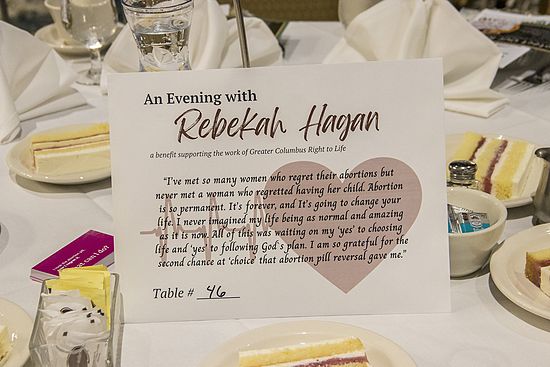 An Evening with
Rebekah Hagan
a benefit supporting the work of Greater Columbus Right to Life
"I've met so many women who regret their abortions but
never met a woman who regretted having her child. Abortion
is so permanent. It's forever, and It's going to change your
life. I never imagined my life being as normal and amazing
as it is now. All of this was waiting on my 'yes' to choosing
life and 'yes' to following God's plan. I am so grateful for the
second chance at 'choice' that abortion pill reversal gave me."
Table # 46